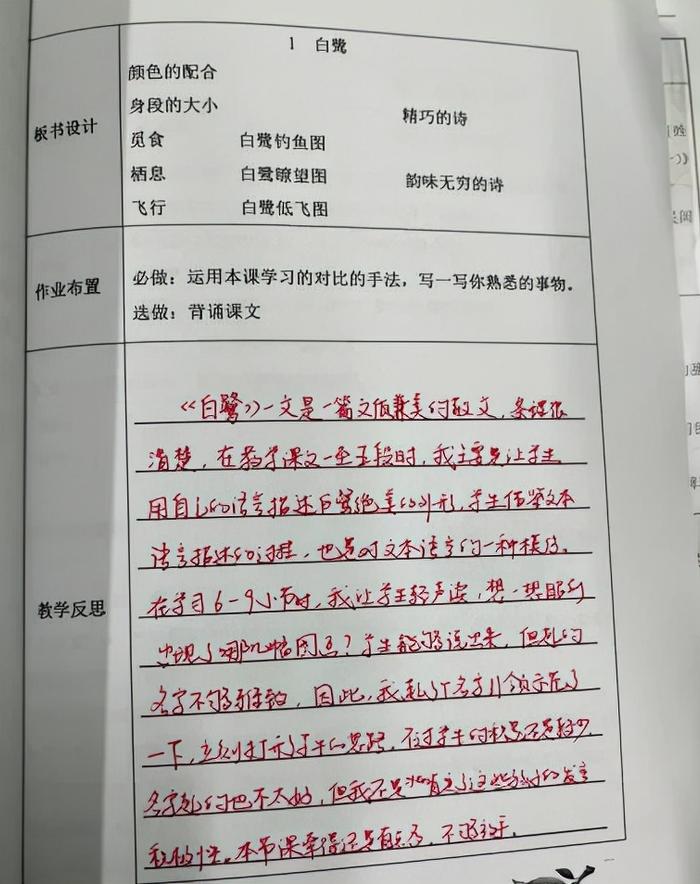 1 白鹭
板书设计
颜色的配合
身段的大小
精巧的诗
觅食 白鹭钓鱼图
栖息 白鹭瞭望图
韵味无穷的诗
飞行 白鹭低飞图
作业布置
必做：运用本课学习的对比的手法，写一写你熟悉的事物。
选做：背诵课文
教学反思
《白鹭》一文是一篇文质兼美的散文，条理很
清楚，在教学课文一至五段时，我主要是让学生
用自己的语言描述白鹭绝美的外形，学生借鉴文本
语言描述的过程，也是对文本语言的一种模仿。
在学习6-9小节时，我让学生轻声读，想一想眼前
出现了哪几幅图画？学生能够说出来，但起的
名字不够雅致，因此，我起了个名字引领示范了
一下，立刻打开了学生的思路，不过学生的积累还是较少，
名字起的也不太好，但我还是肯定了这些孩子的发言
积极性。本节课牵得还是有点多，不够放手。